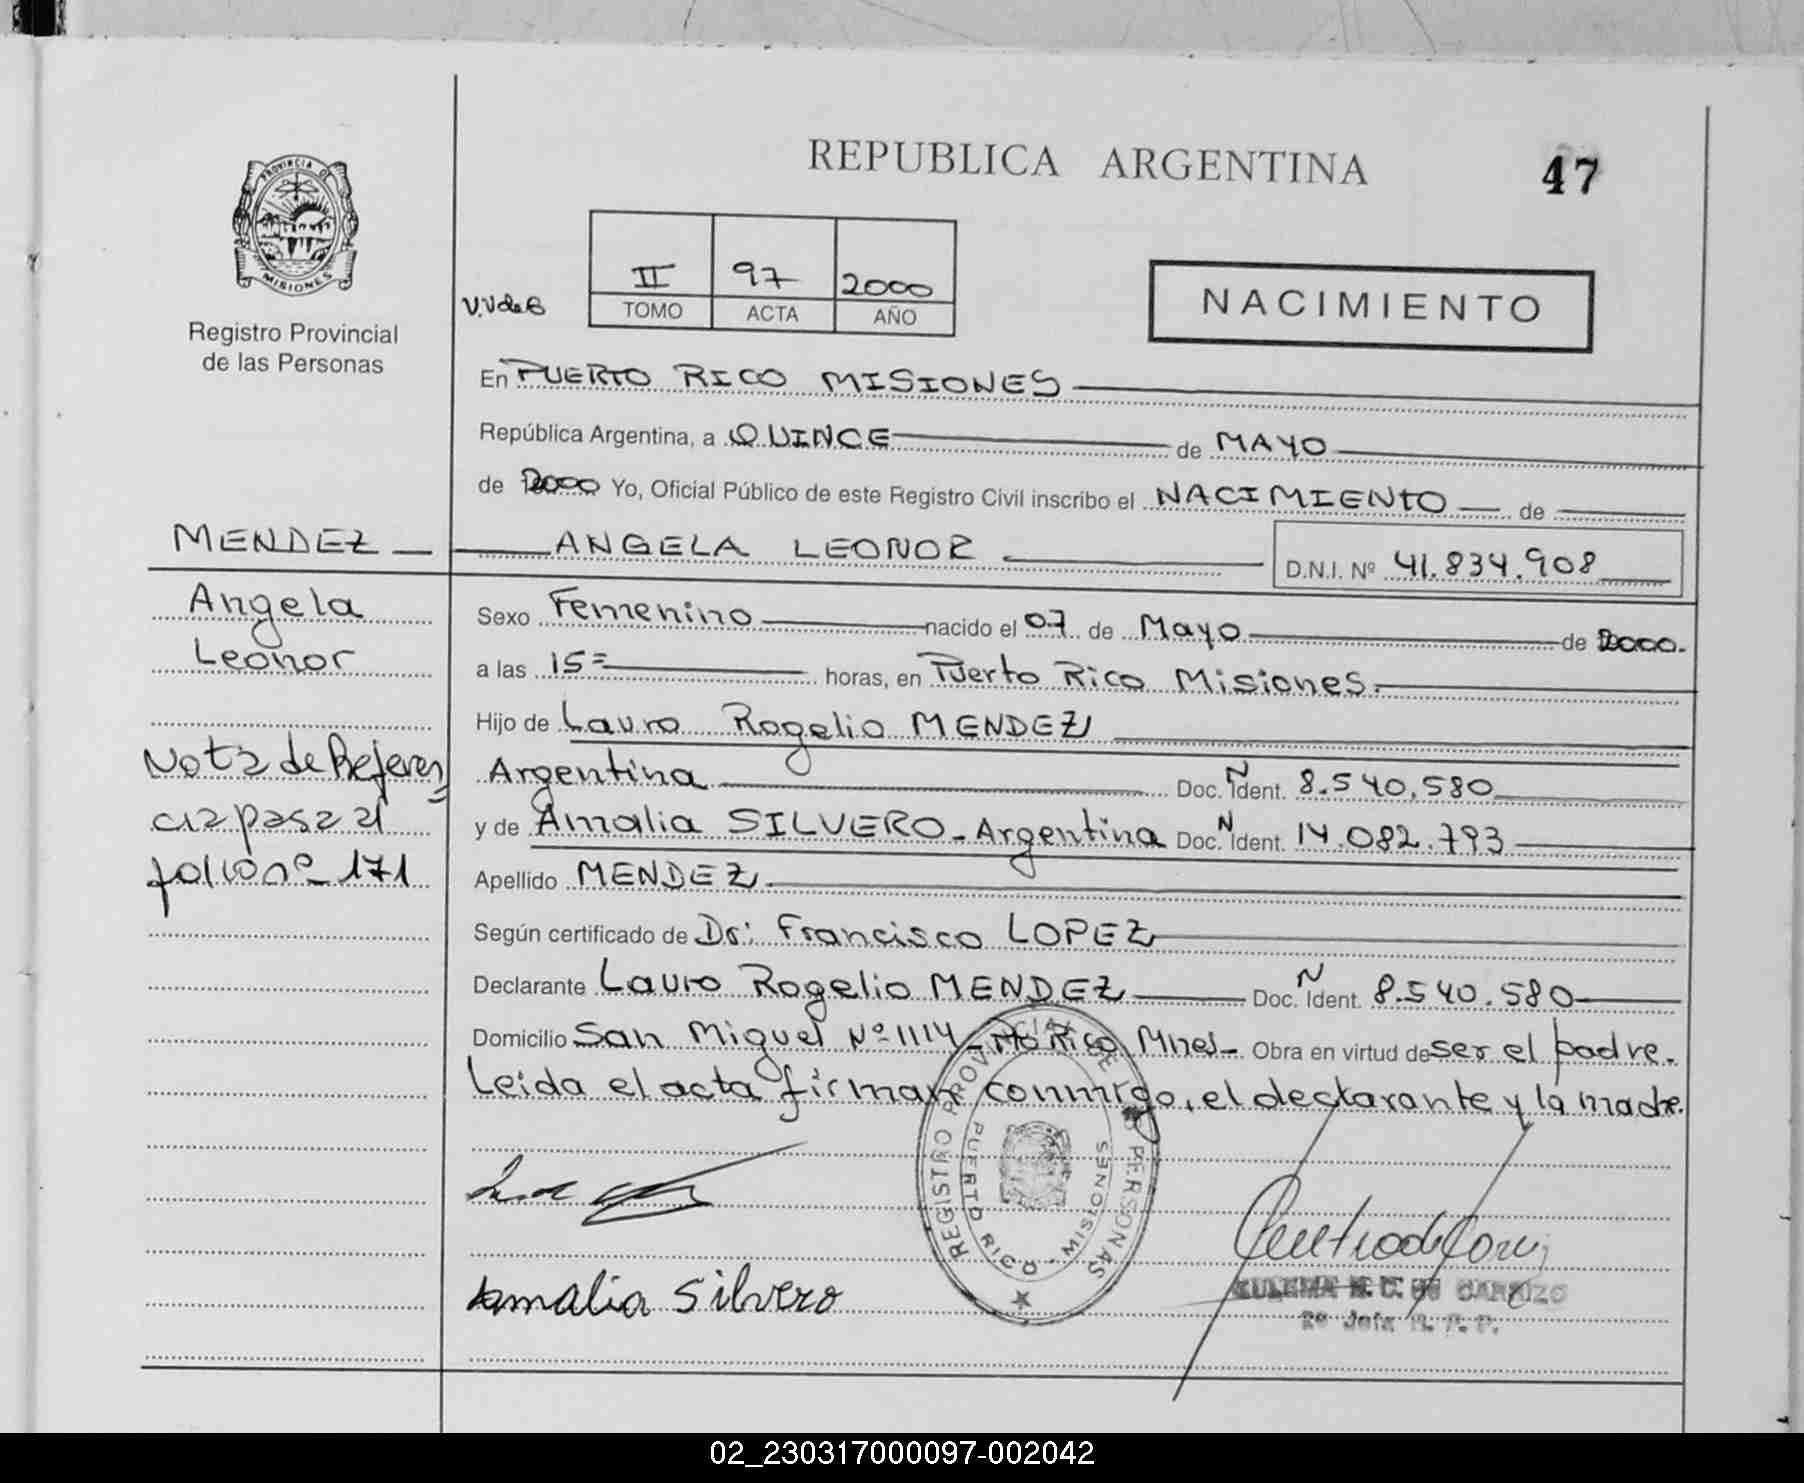 REPUBLICA ARGENTINA
47
PROVINCIA DE MISIONES
Registro Provincial
de las Personas
V.V de B
II 97 2000
TOMO ACTA AÑO
NACIMIENTO
En PUERTO RICO MISIONES
República Argentina, a QUINCE de MAYO
de 2000 Yo, Oficial Público de este Registro Civil inscribo el NACIMIENTO de
MENDEZ ANGELA LEONOR D.N.I. Nº 41.834.908
Angela
Leonor
Nota de Referen
cia pasa al
folio nº 171
Sexo Femenino nacido el 07 de Mayo de 2000.
a las 15= horas, en Puerto Rico Misiones.
Hijo de Lauro Rogelio MENDEZ
Argentina Doc. N Ident. 8.540.580
y de Amalia SILVERO - Argentina Doc. N Ident. 14.082.793
Apellido MENDEZ
Según certificado de Dr: Francisco LOPEZ
Declarante Lauro Rogelio MENDEZ Doc. N Ident. 8.540.580
Domicilio San Miguel Nº 1114 - Pto Rico Mnes - Obra en virtud de ser el padre.
Leida el acta firman conmigo, el declarante y la madre.
REGISTRO PROVINCIAL DE PERSONAS
PUERTO RICO - MISIONES
Amalia Silvero
ZULEMA M. C. DE CARRIZO
2º Jefa R. P. P.
02_230317000097-002042